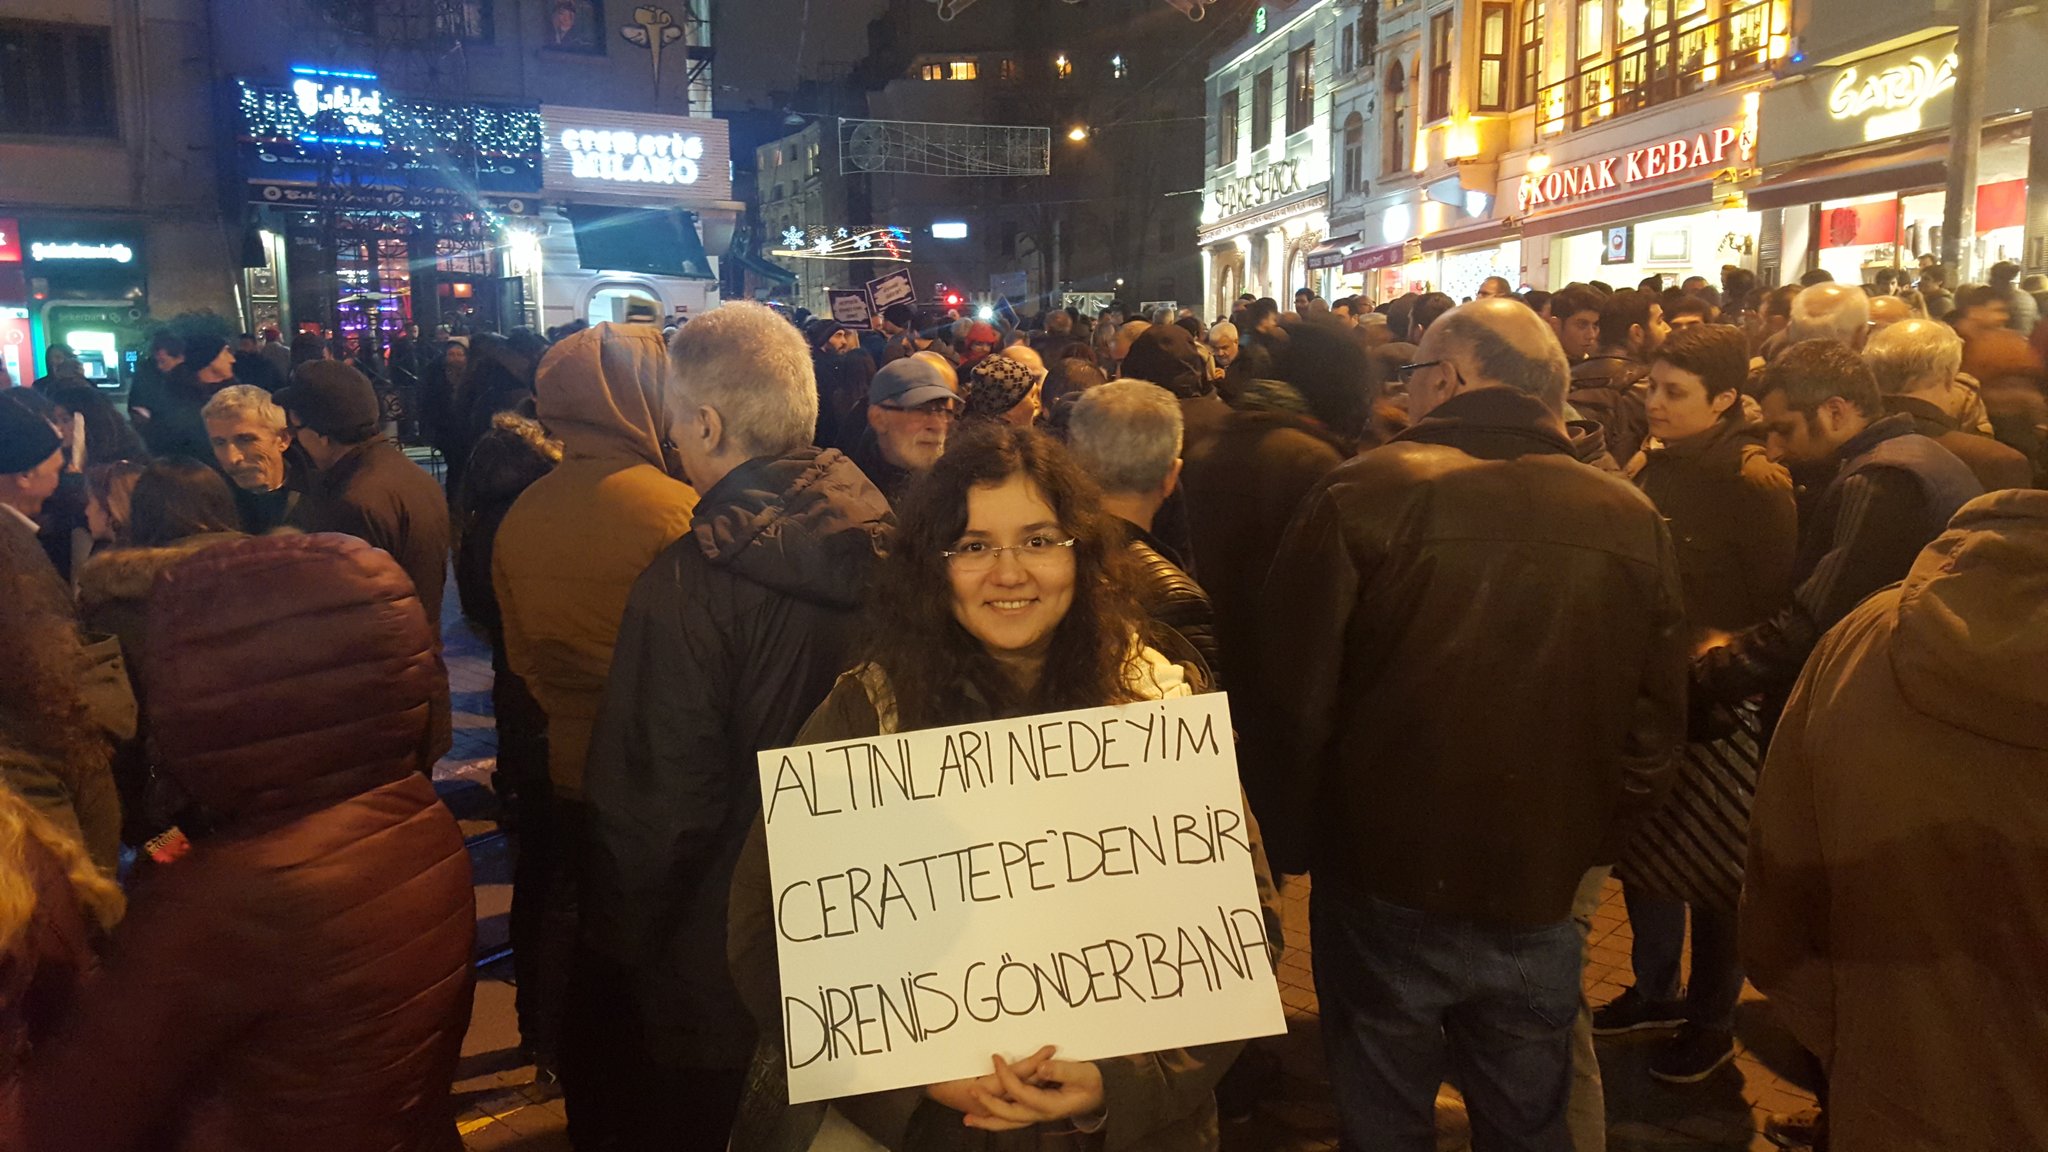 cremeria
MILANO
SHAKE SHACK
KONAK KEBAP
şekerbank
ALTINLARI NEDEYİM
CERATTEPE'DEN BİR
DİRENİS GÖNDER BANA